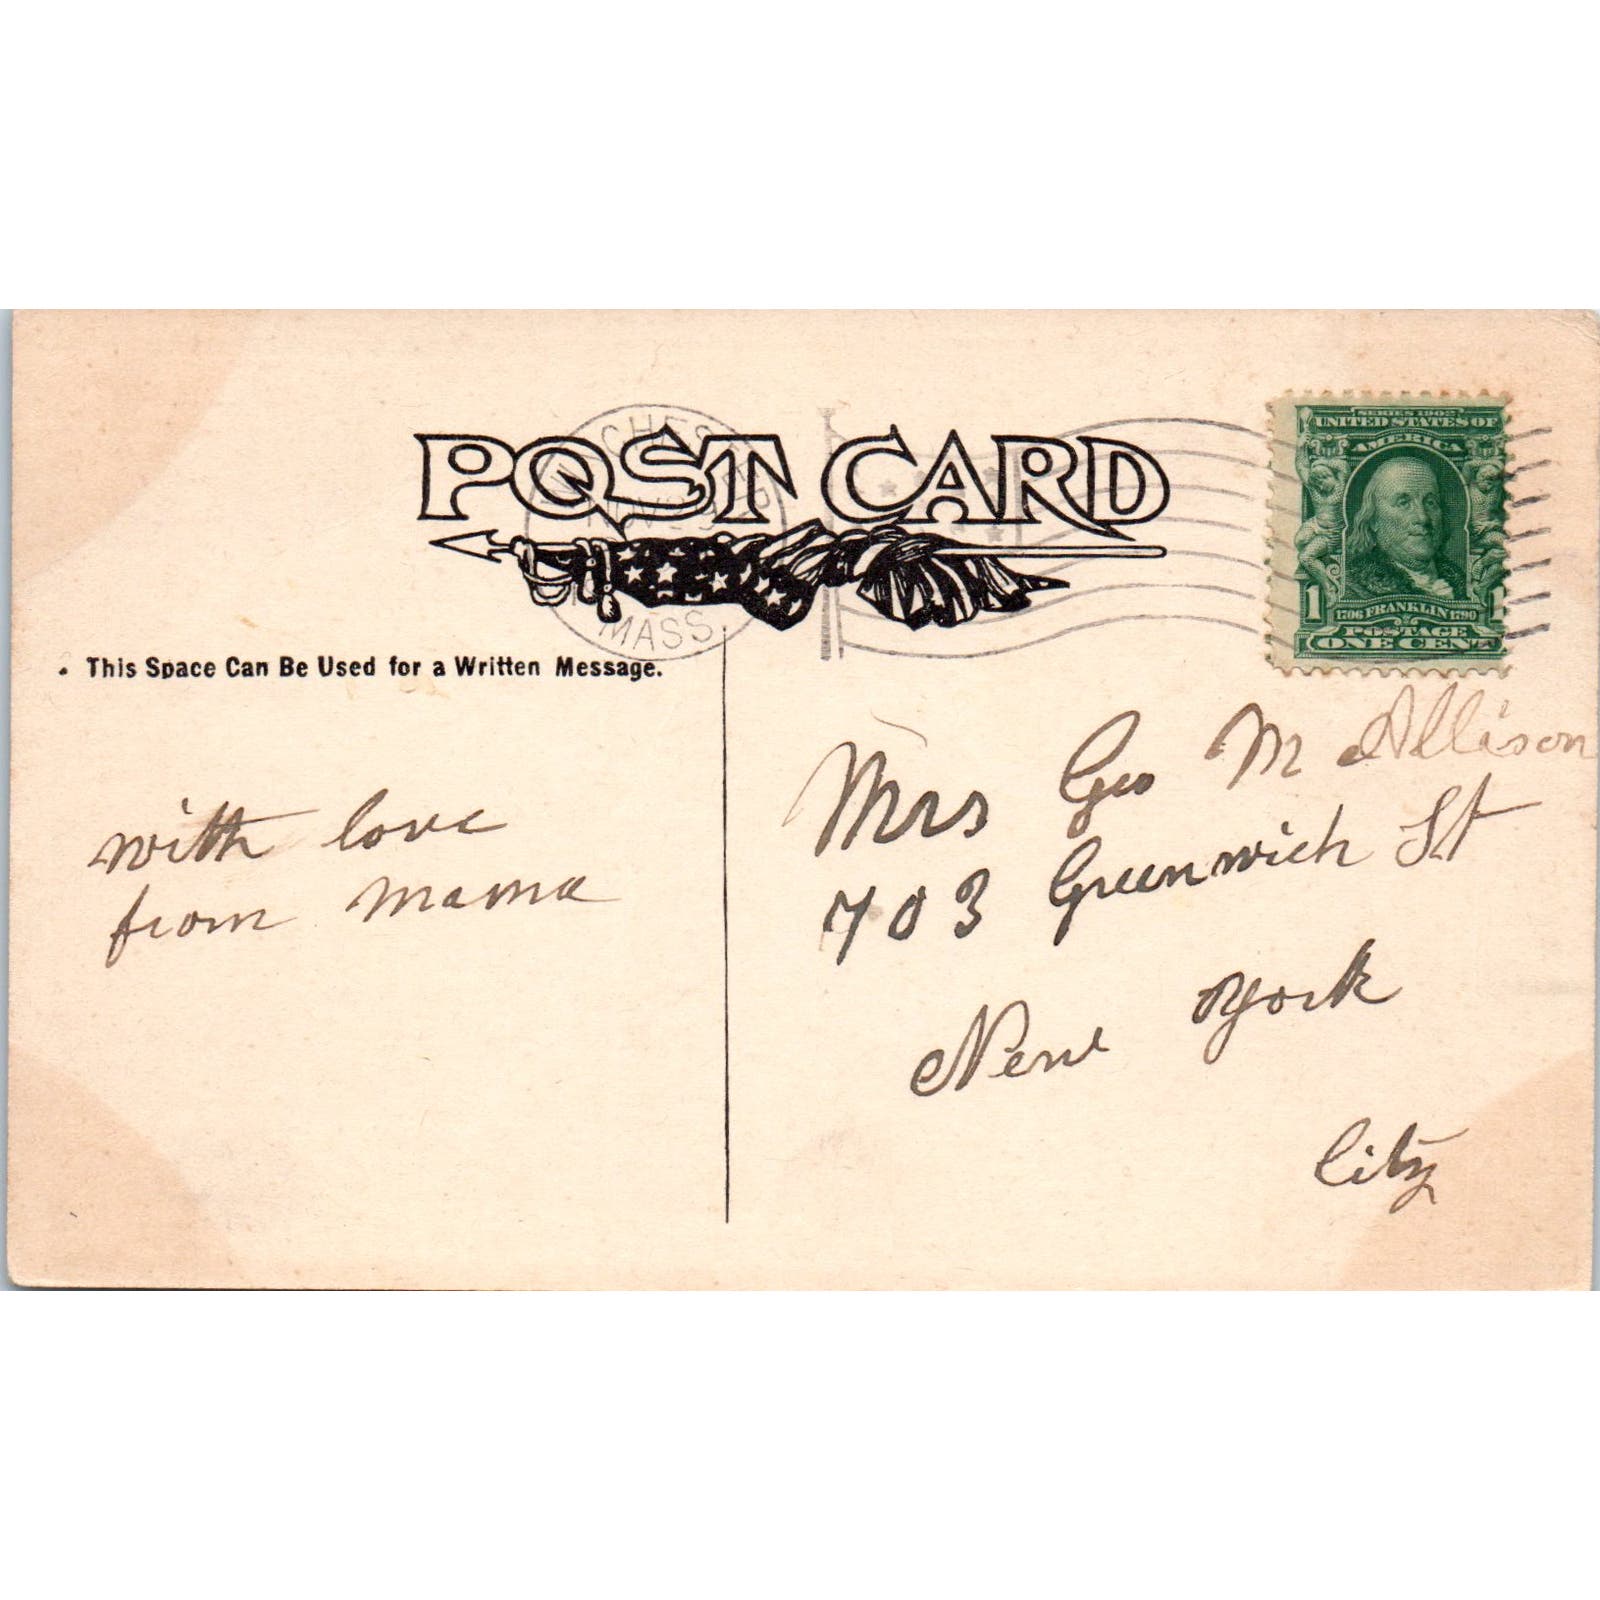 POST CARD
CHESTER
NOV
MASS.
SERIES 1902
UNITED STATES OF
AMERICA
1 1706 FRANKLIN 1790 1
POSTAGE
ONE CENT
This Space Can Be Used for a Written Message.
with love
from mama
Mrs Geo M Allison
703 Greenwich St
New York
City